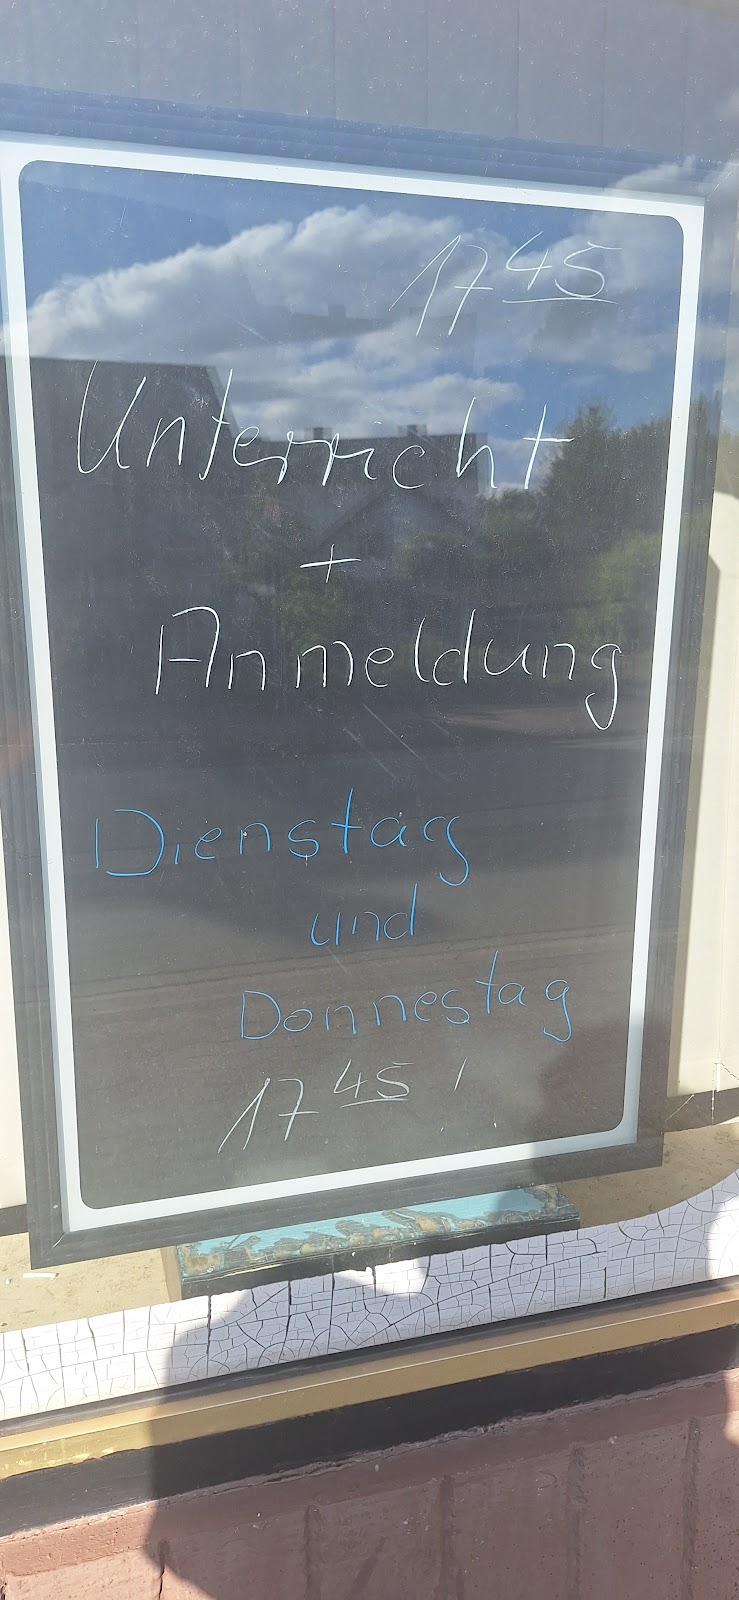 17 45
Unterricht
+
Anmeldung
Dienstag
und
Donnestag
17 45 !